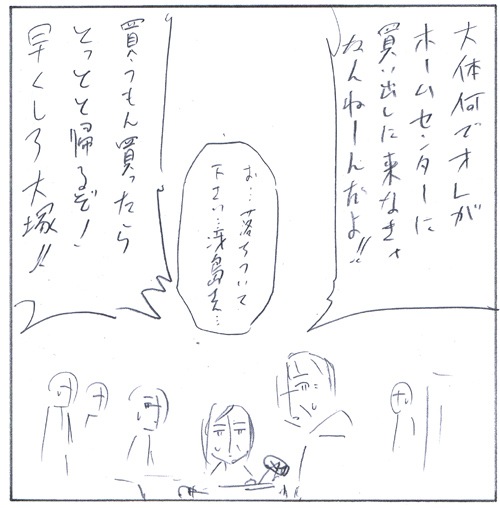 大体何でオレが
ホームセンターに
買い出しに来なきゃ
なんねーんだよ!!
お…落ちついて
下さい…浮島夫…
買うもん買ったら
とっとと帰るぞ!
早くしろ大塚!!